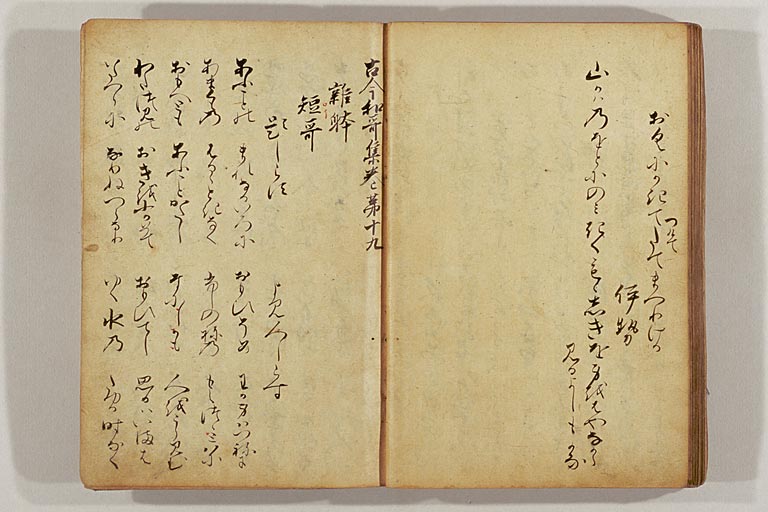 おくにかきつけてたてまつりける
伊勢
山かはのをとにのみきくもゝしきを身をはやなから
みるよしもかな
古今和哥集巻第十九
雜躰
短哥
題しらす　よみ人しらす
あふことの　まれなるいろに　おもひそめ　わか身はつねに
あまくもの　はるゝときなく　ふしのねの　もえつゝとはに
おもへとも　あふことかたし　なにしかも　人をうらみむ
わたつみの　おきをふかめて　おもひてし　思ひはいまは
いたつらに　なりぬへらなり　ゆく水の　たゆる時なく